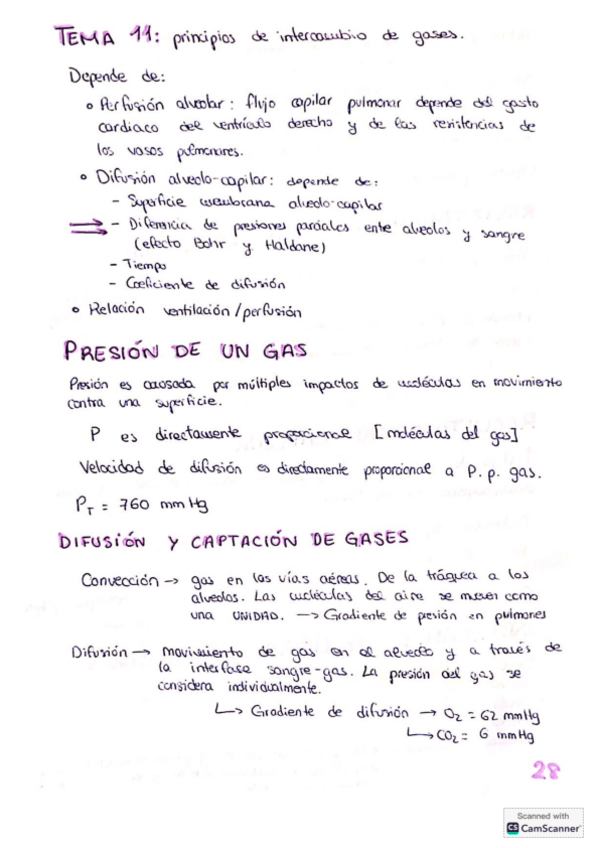 TEMA 11: principios de intercambio de gases.
Depende de:
• Perfusión alveolar: flujo capilar pulmonar depende del gasto
cardiaco del ventrículo derecho y de las resistencias de
los vasos pulmonares.
• Difusión alveolo-capilar: depende de:
- Superficie membrana alveolo-capilar
⇒ - Diferencia de presiones parciales entre alveolos y sangre
(efecto Bohr y Haldane)
- Tiempo
- Coeficiente de difusión
• Relación ventilación/perfusión
PRESIÓN DE UN GAS
Presión es causada por múltiples impactos de moléculas en movimiento
contra una superficie.
P es directamente proporcional [moléculas del gas]
Velocidad de difusión es directamente proporcional a P.p. gas.
P_T = 760 mmHg
DIFUSIÓN Y CAPTACIÓN DE GASES
Convección → gas en las vías aéreas. De la tráquea a los
alveolos. Las moléculas del aire se mueven como
una UNIDAD. → Gradiente de presión en pulmones
Difusión → movimiento de gas en el alveolo y a través de
la interfase sangre-gas. La presión del gas se
considera individualmente.
↳ Gradiente de difusión → O₂ = 62 mmHg
↳ CO₂ = 6 mmHg
28
Scanned with
CS CamScanner